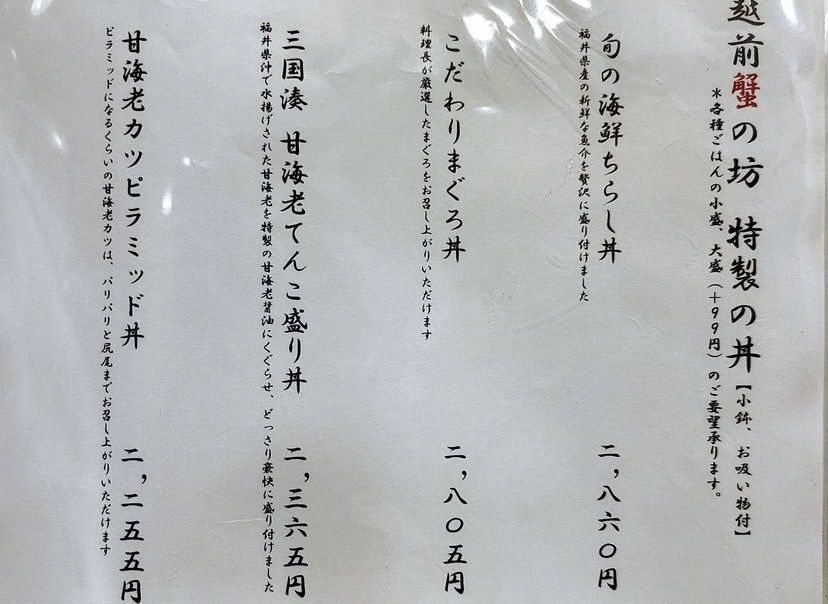 越前蟹の坊 特製の丼【小鉢、お吸い物付】
*各種ごはんの小盛、大盛(+99円)のご要望承ります。
旬の海鮮ちらし丼 二,八六〇円
福井県産の新鮮な魚介を贅沢に盛り付けました
こだわりまぐろ丼 二,八〇五円
料理長が厳選したまぐろをお召し上がりいただけます
三国湊 甘海老てんこ盛り丼 二,三六五円
福井県沖で水揚げされた甘海老を特製の甘海老醤油にくぐらせ、どっさり豪快に盛り付けました
甘海老カツピラミッド丼 二,二五五円
ピラミッドになるくらいの甘海老カツは、バリバリと尻尾までお召し上がりいただけます